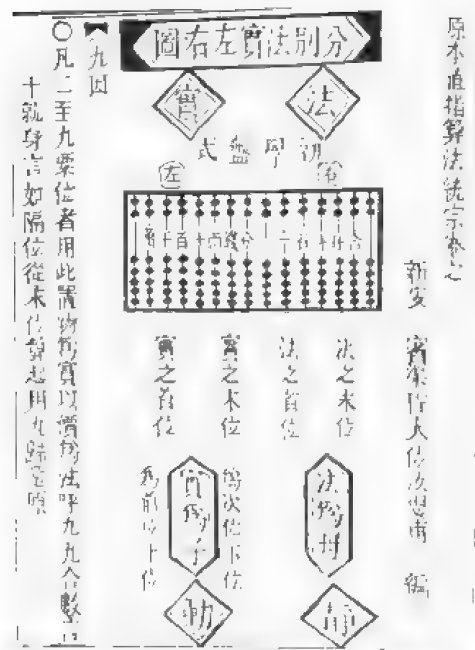 原本直指算法統宗卷之
新安 賓渠程大位汝思甫 編
分別法實左右圖
法
實
初學盤式
右
左
法之末位
法之首位
實之末位
實之首位
法為母
實為子
為次位下位
為前位上位
靜
動
九因
○凡二至九乘位者用此置物為實以價為法呼九九合數言
十就身言如隔位從末位算起用九歸還原